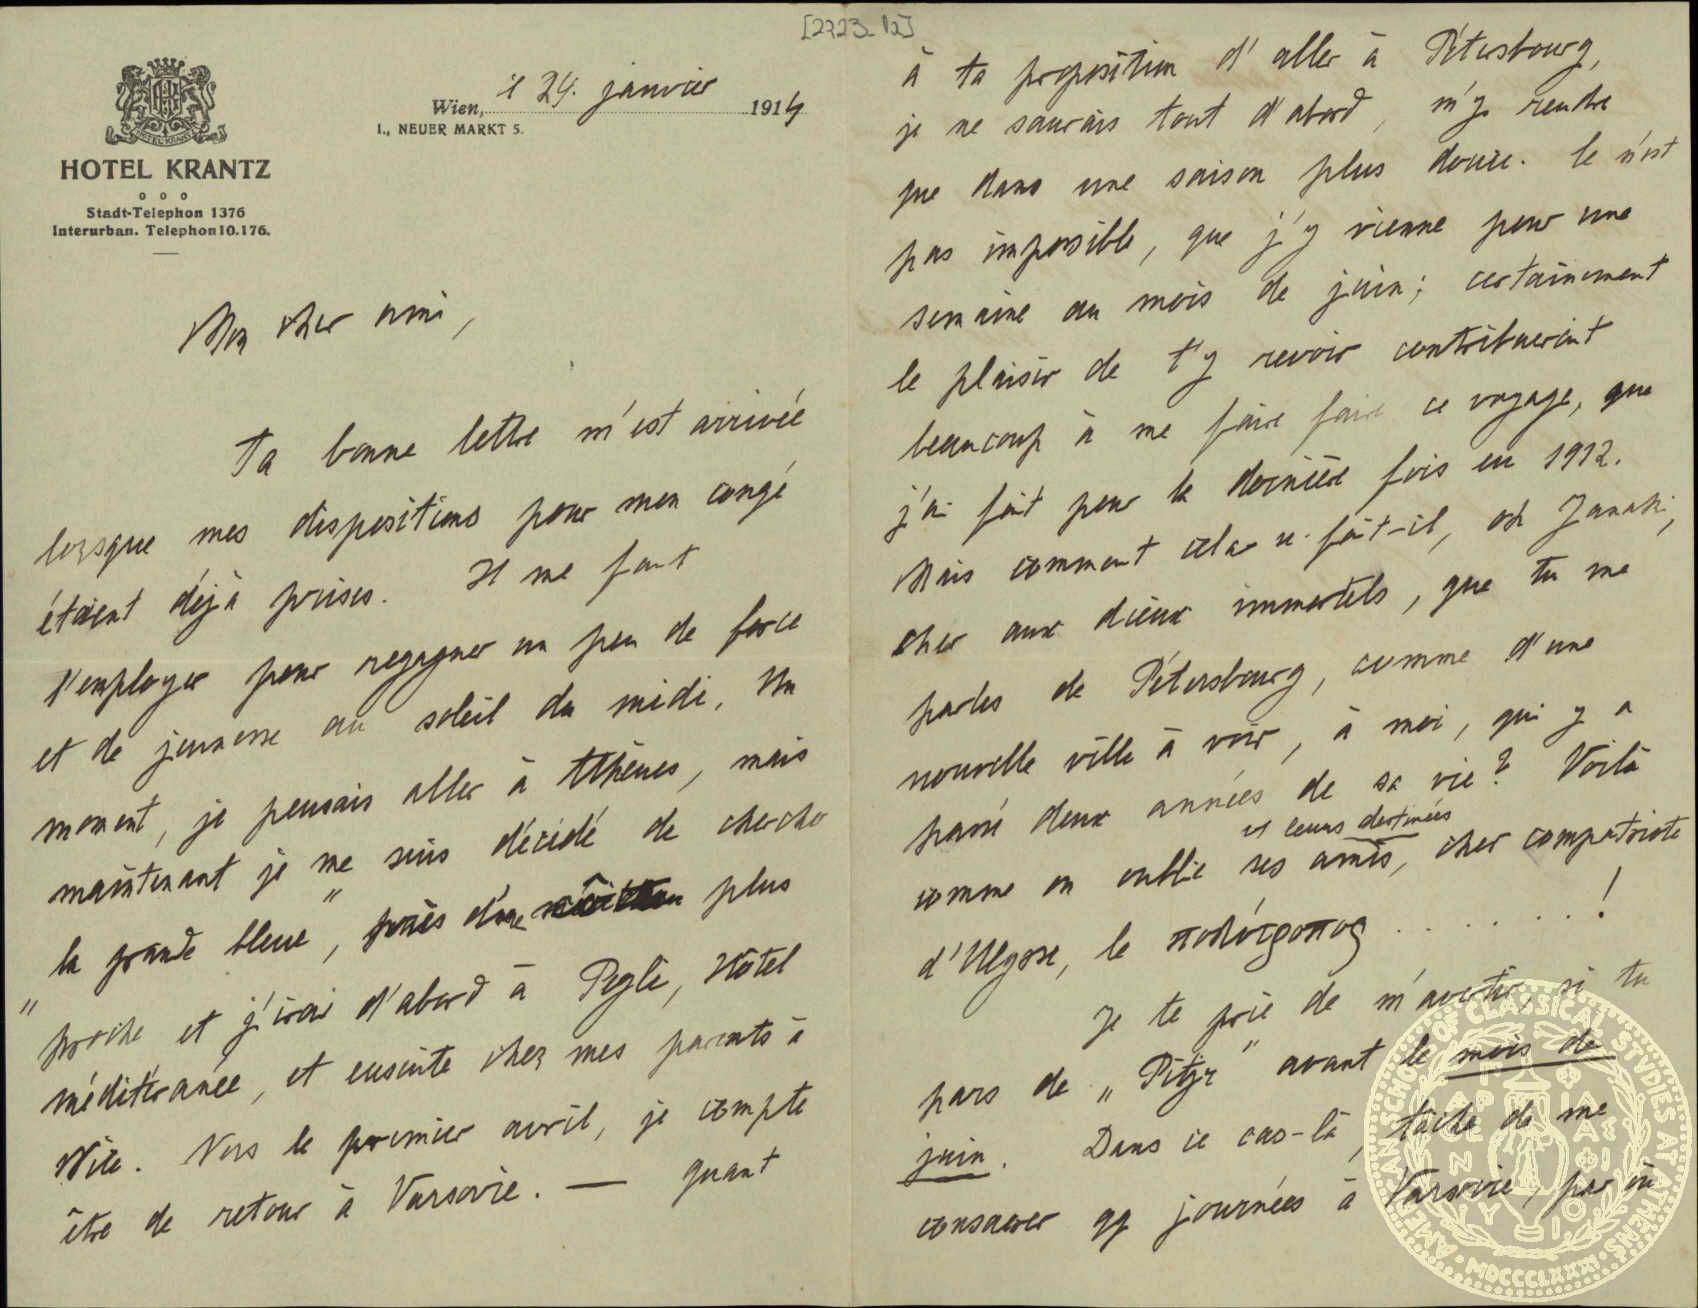 [2723_12]
HOTEL KRANTZ
Stadt-Telephon 1376
Interurban. Telephon 10.176.
Wien, 24. janvier 1914
I., NEUER MARKT 5.
Mon cher ami,
Ta bonne lettre m'est arrivée
lorsque mes dispositions pour mon congé
étaient déjà prises. Il me faut
l'employer pour regagner un peu de force
et de jeunesse au soleil du midi. Un
moment, je pensais aller à Athènes, mais
maintenant je me suis décidé de chercher
"la grande bleue", plus
proche et j'irai d'abord à Pegli, Hôtel
méditéranée, et ensuite chez mes parents à
Nice. Vers le premier avril, je compte
être de retour à Varsovie. — quant
à ta proposition d'aller à Pétersbourg,
je ne saurais tout d'abord, m'y rendre
que dans une saison plus douce. Ce n'est
pas impossible, que j'y vienne pour une
semaine au mois de juin; certainement
le plaisir de t'y revoir contribuerait
beaucoup à me faire faire ce voyage, que
j'ai fait pour la dernière fois en 1912.
Mais comment cela se fait-il, oh Janaki,
cher aux dieux immortels, que tu me
parles de Pétersbourg, comme d'une
nouvelle ville à voir, à moi, qui y a
passé deux années de sa vie? Voilà
comme on oublie ses amis, et leurs destinées cher compatriote
d'Ulysse, le πολύτροπος . . . . . . !
Je te prie de m'avertir, si tu
pars de „Pitjr" avant le mois de
juin. Dans ce cas-là, tâche de me
consacrer qq journées à Varsovie, par où
AMERICAN SCHOOL OF CLASSICAL STVDIES AT ATHENS
MDCCCLXXXI